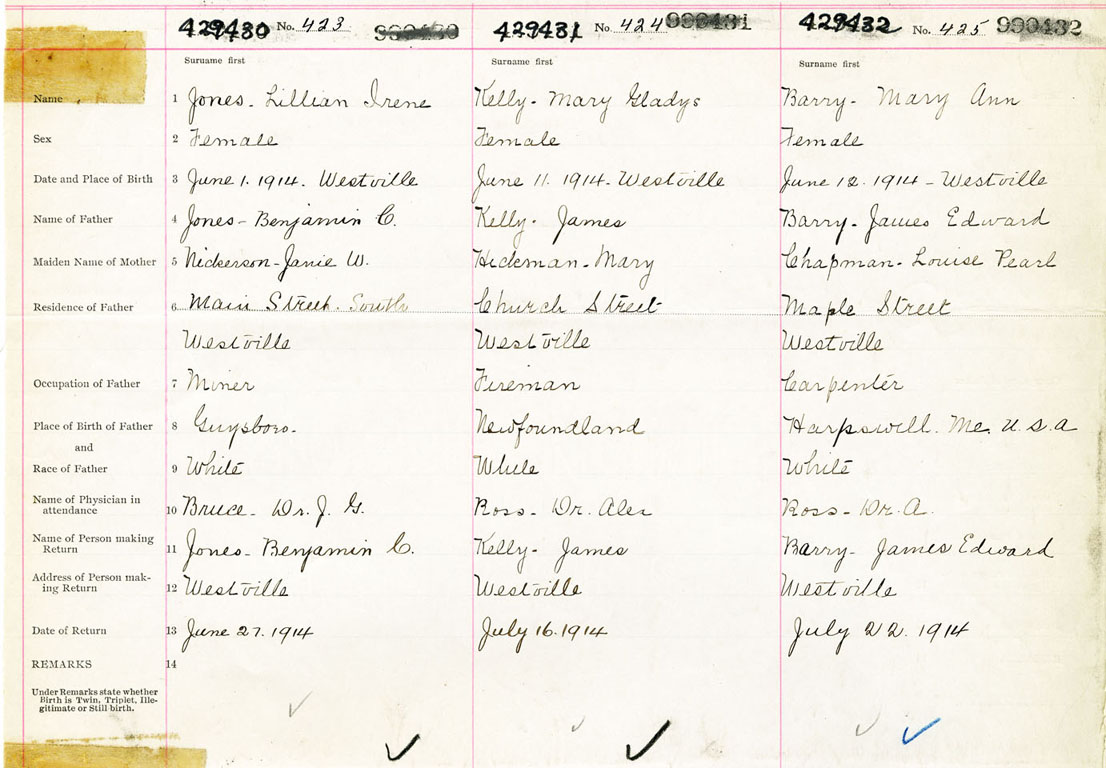 429430 No. 423 990430 429431 No. 424 990431 429432 No. 425 990432
Suruame first Surname first Surname first
Name 1 Jones - Lillian Irene Kelly - Mary Gladys Barry - Mary Ann
Sex 2 Female Female Female
Date and Place of Birth 3 June 1. 1914. Westville June 11. 1914 - Westville June 12. 1914 - Westville
Name of Father 4 Jones - Benjamin C. Kelly - James Barry - James Edward
Maiden Name of Mother 5 Nickerson - Janie W. Hickman - Mary Chapman - Louise Pearl
Residence of Father 6 Main Street. South Church Street Maple Street
Westville Westville Westville
Occupation of Father 7 Miner Fireman Carpenter
Place of Birth of Father 8 Guysboro. Newfoundland Harpswill. Me. U.S.A
and
Race of Father 9 White White White
Name of Physician in
attendance 10 Bruce - Dr. J. G. Ross - Dr. Alex Ross - Dr. A.
Name of Person making
Return 11 Jones - Benjamin C. Kelly - James Barry - James Edward
Address of Person mak-
ing Return 12 Westville Westville Westville
Date of Return 13 June 27. 1914 July 16. 1914 July 22. 1914
REMARKS 14
Under Remarks state whether
Birth is Twin, Triplet, Ille-
gitimate or Still birth.